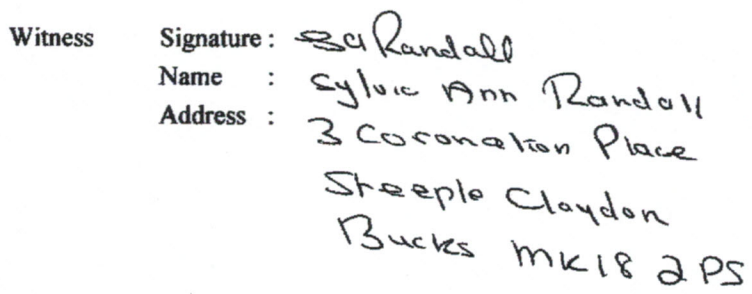 Witness Signature : SA Randall
Name : Sylvie Ann Randall
Address : 3 Coronation Place
Steeple Claydon
Bucks MK18 2PS